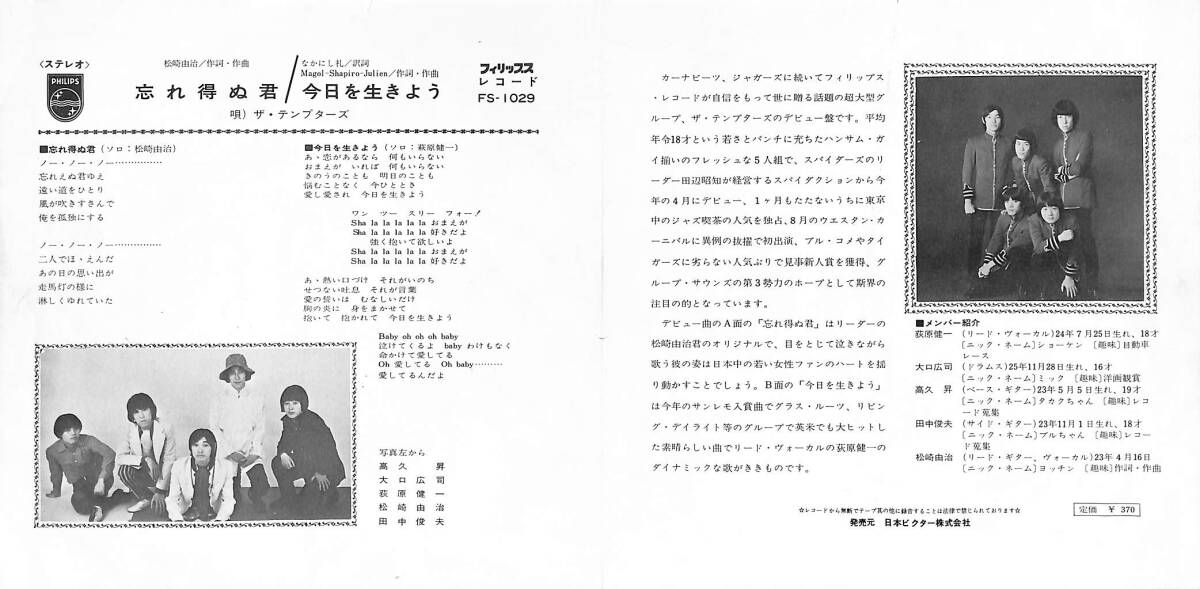 〈ステレオ〉
PHILIPS
松崎由治／作詞・作曲
忘れ得ぬ君／今日を生きよう
なかにし礼／訳詞
Magol-Shapiro-Julien／作詞・作曲
唄）ザ・テンプターズ
フィリップス
レコード
FS-1029
■忘れ得ぬ君（ソロ：松崎由治）
ノー・ノー・ノー……………
忘れえぬ君ゆえ
遠い道をひとり
風が吹きすさんで
俺を孤独にする
ノー・ノー・ノー……………
二人でほゝえんだ
あの日の思い出が
走馬灯の様に
淋しくゆれていた
■今日を生きよう（ソロ：萩原健一）
あゝ恋があるなら　何もいらない
おまえが　いれば　何もいらない
きのうのことも　明日のことも
悩むことなく　今ひととき
愛し愛され　今日を生きよう
ワン　ツー　スリー　フォー！
Sha la la la la la おまえが
Sha la la la la la 好きだよ
強く抱いて欲しいよ
Sha la la la la la おまえが
Sha la la la la la 好きだよ
あゝ熱い口づけ　それがいのち
せつない吐息　それが言葉
愛の誓いは　むなしいだけ
胸の炎に　身をまかせて
抱いて　抱かれて　今日を生きよう
Baby oh oh oh baby
泣けてくるよ　baby わけもなく
命かけて愛してる
Oh 愛してる　Oh baby………
愛してるんだよ
写真左から
高久　昇
大口広司
萩原健一
松崎由治
田中俊夫
カーナビーツ、ジャガーズに続いてフィリップス
・レコードが自信をもって世に贈る話題の超大型グ
ループ、ザ・テンプターズのデビュー盤です。平均
年令18才という若さとパンチに充ちたハンサム・ガ
イ揃いのフレッシュな5人組で、スパイダーズのリ
ーダー田辺昭知が経営するスパイダクションから今
年の4月にデビュー、1ヶ月もたたないうちに東京
中のジャズ喫茶の人気を独占、8月のウエスタン・カ
ーニバルに異例の抜擢で初出演、ブル・コメやタイ
ガーズに劣らない人気ぶりで見事新人賞を獲得、グ
ループ・サウンズの第3勢力のホープとして斯界の
注目の的となっています。
デビュー曲のA面の「忘れ得ぬ君」はリーダーの
松崎由治君のオリジナルで、目をとじて泣きながら
歌う彼の姿は日本中の若い女性ファンのハートを揺
り動かすことでしょう。B面の「今日を生きよう」
は今年のサンレモ入賞曲でグラス・ルーツ、リビン
グ・デイライト等のグループで英米でも大ヒットし
た素晴らしい曲でリード・ヴォーカルの萩原健一の
ダイナミックな歌がききものです。
■メンバー紹介
萩原健一　（リード・ヴォーカル）24年7月25日生れ、18才
［ニック・ネーム］ショーケン　［趣味］自動車
レース
大口広司　（ドラムス）25年11月28日生れ、16才
［ニック・ネーム］ミック　［趣味］洋画観賞
高久　昇　（ベース・ギター）23年5月5日生れ、19才
［ニック・ネーム］タカクちゃん　［趣味］レコ
ード蒐集
田中俊夫　（サイド・ギター）23年11月1日生れ、18才
［ニック・ネーム］ブルちゃん　［趣味］レコー
ド蒐集
松崎由治　（リード・ギター、ヴォーカル）23年4月16日
［ニック・ネーム］ヨッチン　［趣味］作詞・作曲
☆レコードから無断でテープ其の他に録音することは法律で禁じられております☆
発売元　日本ビクター株式会社
定価　￥ 370